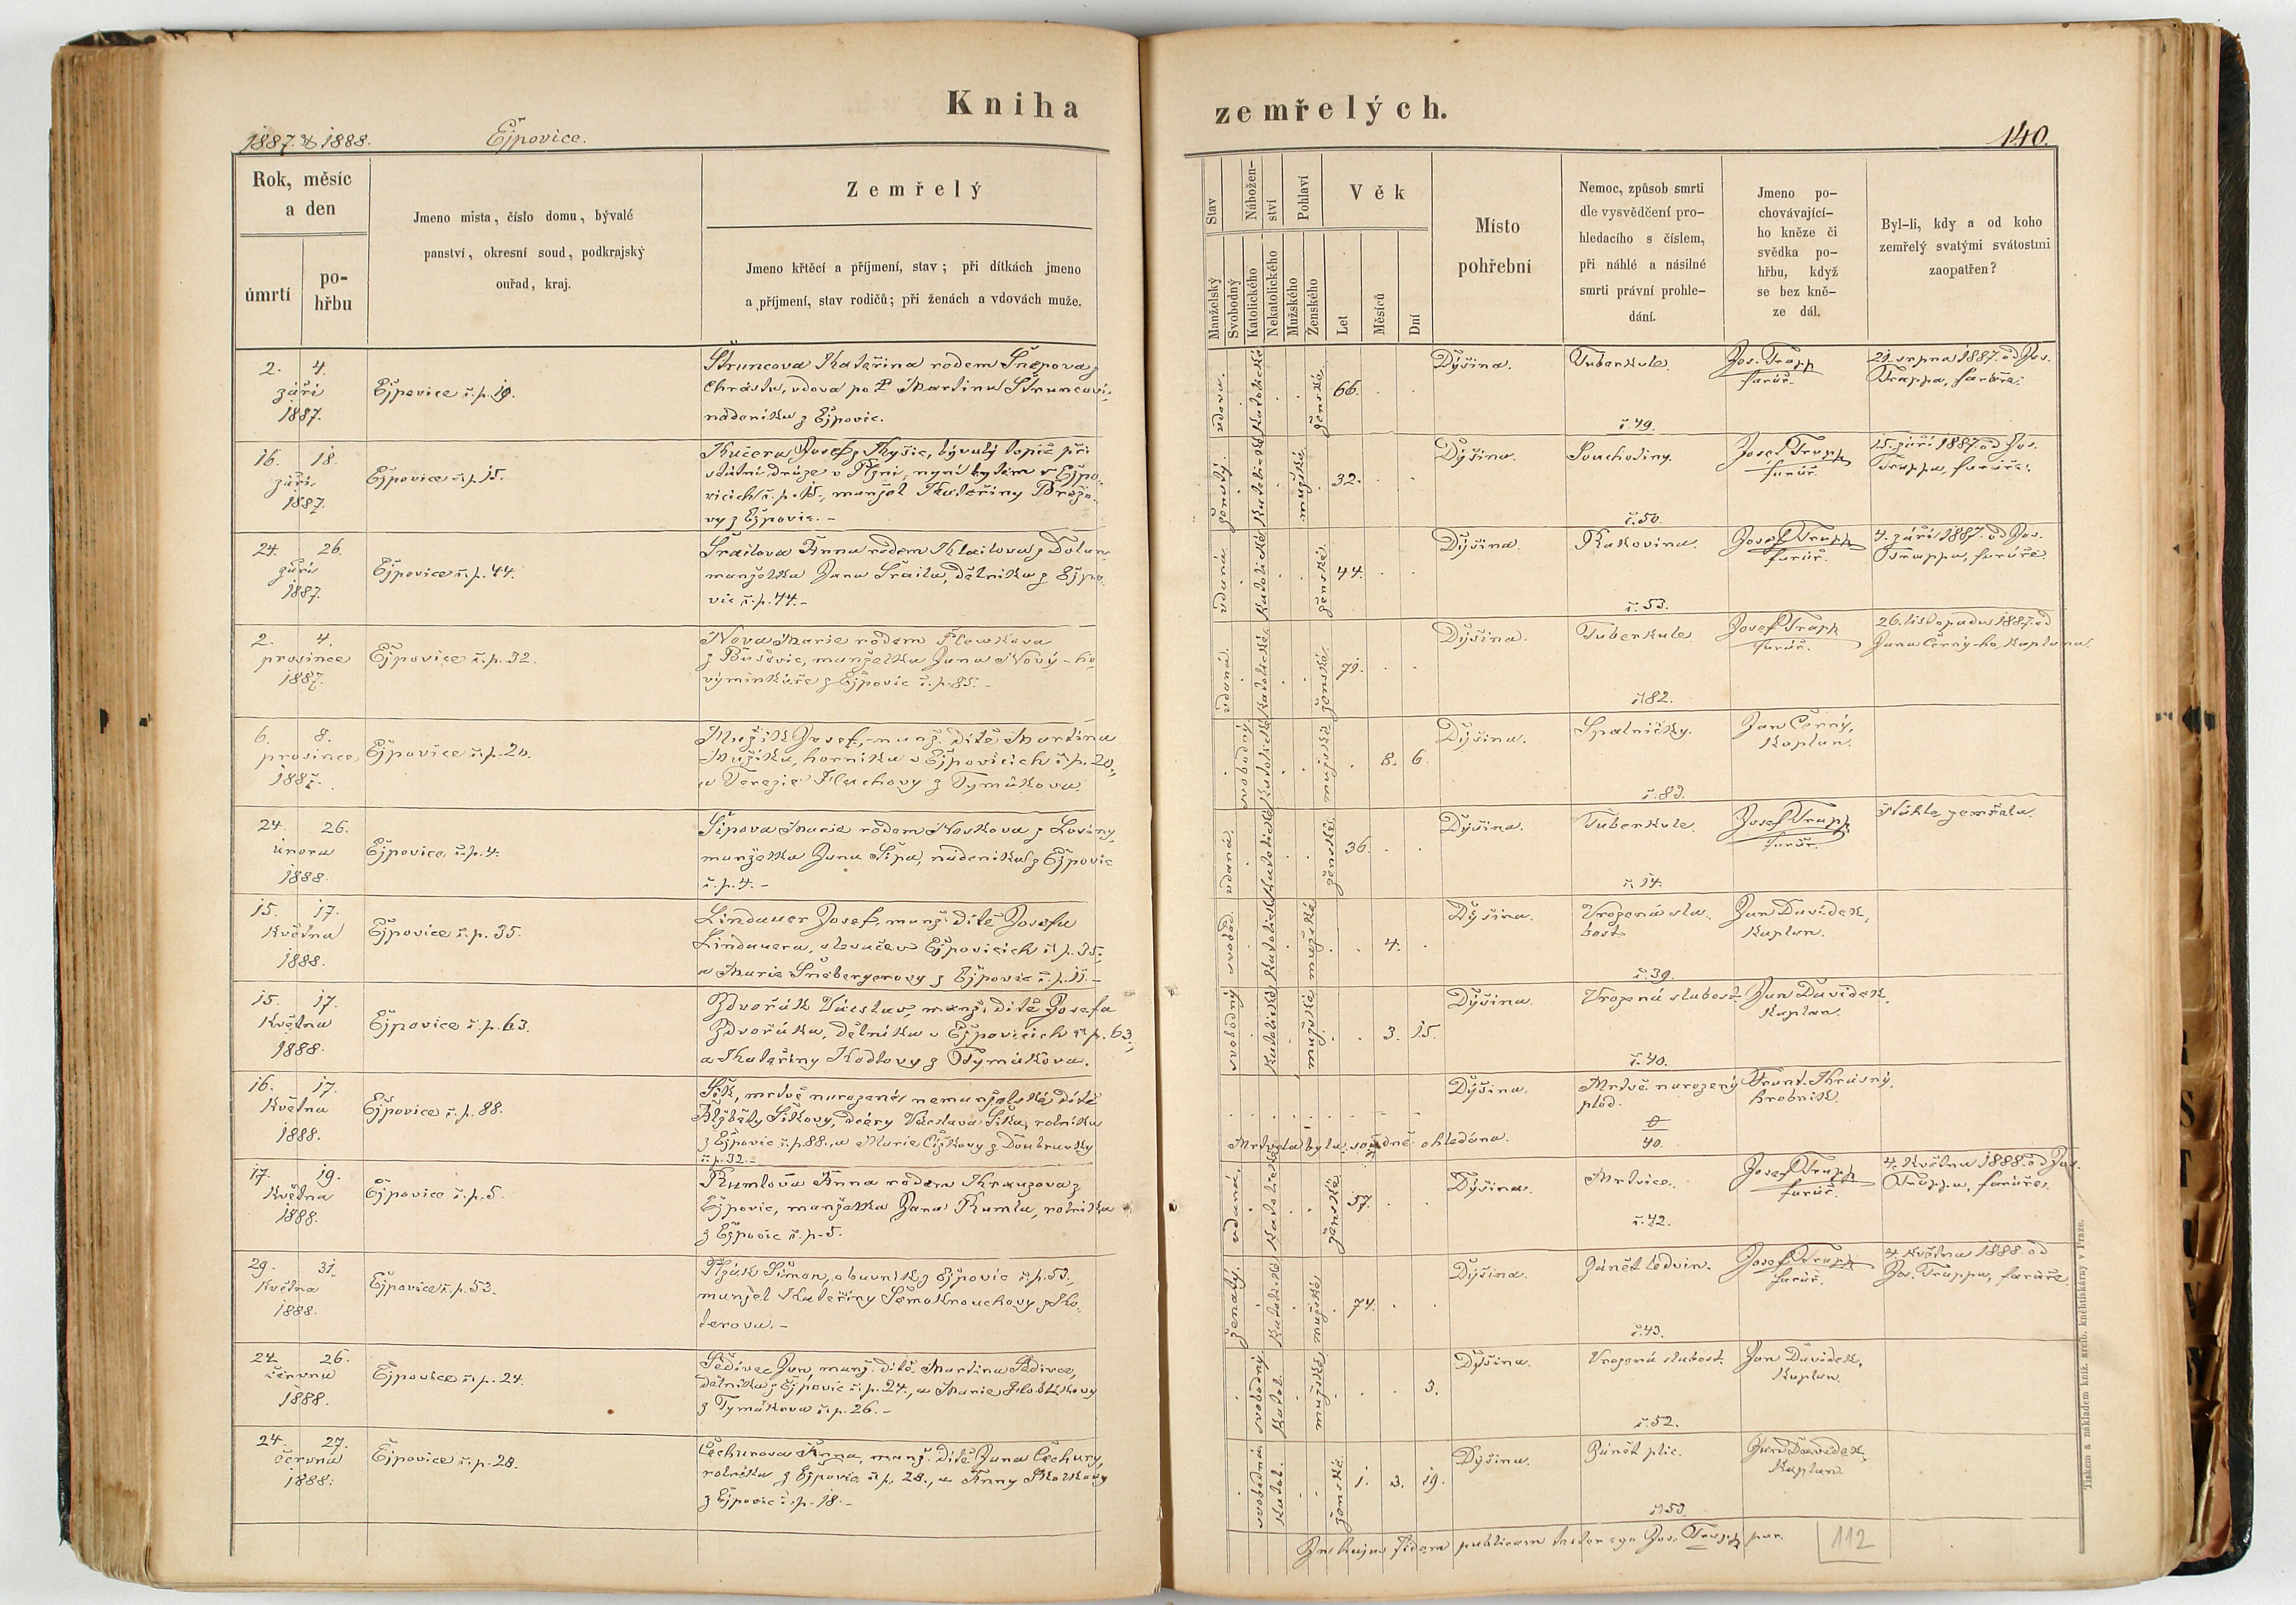 Kniha
zemřelých.
1887. & 1888.
Ejpovice.
140.
Rok, měsíc
a den
úmrtí
po-
hřbu
Jmeno mista, číslo domu, bývalé
panství, okresní soud, podkrajský
ouřad, kraj.
Zemřelý
Jmeno křtěcí a příjmení, stav; při dítkách jmeno
a příjmení, stav rodičů; při ženách a vdovách muže.
Stav
Manželský
Svobodný
Nábožen-
ství
Katolického
Nekatolického
Pohlaví
Mužského
Ženského
Věk
Let
Měsíců
Dní
Místo
pohřební
Nemoc, způsob smrti
dle vysvědčení pro-
hledacího s číslem,
při náhlé a násilné
smrti právní prohle-
dání.
Jmeno po-
chovávající-
ho kněze či
svědka po-
hřbu, když
se bez kně-
ze dál.
Byl-li, kdy a od koho
zemřelý svatými svátostmi
zaopatřen?
2. 4.
září
1887.
Ejpovice č. p. 19.
Štruncova Kateřina rodem
Chrástu, vdova po Martinu Štruncovi,
nádeníku z Ejpovic.
vdova. katolické ženské 66.
Dýšina.
Tuberkule.
č. 49.
Jos. Trapp
farář.
21. srpna 1887. od Jos.
Trappa, faráře.
16. 18.
září
1887.
Ejpovice č. p. 15.
Kučera Josef z Kyšic, bývalý topič při
státní dráze v Plzni, nyní bytem v Ejpo-
vicích č. p. 15., manžel Kateřiny Brožo-
vy z Ejpovic. -
ženatý. mužské 32.
Dýšina.
Souchotiny.
č. 50.
Josef Trapp
farář.
15. září 1887 od Jos.
Trappa, faráře.
24. 26.
září
1887.
Ejpovice č. p. 44.
Anna rodem z Dolan
manželka Jana dělníka z Ejpo-
vic č. p. 44. -
vdaná katolické ženské. 44.
Dýšina.
Rakovina.
č. 53.
Josef Trapp
farář.
4. září 1887. od Jos.
Trappa, faráře.
2. 4.
prosince
1887.
Ejpovice č. p. 32.
Nova Marie rodem
z Bušovic, manželka Jana Nový-ho
výminkáře z Ejpovic č. p. 85. -
vdaná. katolické ženské. 71.
Dýšina.
Tuberkule.
č. 82.
Josef Trapp
farář.
26. listopadu 1887. od
Jana Černý-ho, kaplana.
6. 8.
prosince
1887.
Ejpovice č. p. 20.
Mužík Josef, manž. dítě Martina
Mužíka, horníka v Ejpovicích č. p. 20.,
a Terezie z Tymákova.
svobodný. katolické mužské 8. 6.
Dýšina.
Spalničky.
č. 83.
Jan Černý,
kaplan.
24. 26.
února
1888.
Ejpovice č. p. 4.
Šípova Marie rodem Noskova z Losiny,
manželka Jana Šípa, nádeníka z Ejpovic
č. p. 4. -
vdaná. katolické ženské 36.
Dýšina.
Tuberkule.
č. 14.
Josef Trapp
farář.
Náhle zemřela.
15. 17.
května
1888.
Ejpovice č. p. 35.
Lindauer Josef, manž. dítě Josefa
Lindauera, slevače v Ejpovicích č. p. 35.,
a Marie Šnebergerovy z Ejpovic č. p. 11. -
svobod. katolické mužské 4.
Dýšina.
Vrozená sla-
bost
č. 39.
Jan Davídek,
kaplan.
15. 17.
května
1888.
Ejpovice č. p. 63.
Zdvořák Václav, manž. dítě Josefa
Zdvořáka, dělníka v Ejpovicích č. p. 63.,
a Kateřiny Kodlovy z Tymákova.
svobodný katolické mužské 3. 15.
Dýšina.
Vrozená slabost
č. 40.
Jan Davídek,
kaplan.
16. 17.
května
1888.
Ejpovice č. p. 88.
Šik, mrtvě narozené, nemanželské dítě
Alžběty Šikovy, dcery Václava Šika, rolníka
z Ejpovic č. p. 88., a Marie Čížkovy z Doubravky
č. p. 32. -
Mrtvola byla soudně ohledána.
Dýšina.
Mrtvě narozený
plod.
40.
Frant. Krásný,
hrobník.
17. 19.
května
1888.
Ejpovice č. p. 5.
Kumlova Anna rodem Krauzova z
Ejpovic, manželka Jana Kumla, rolníka
z Ejpovic č. p. 5.
vdaná. katolické ženské 57.
Dýšina.
Mrtvice.
č. 42.
Josef Trapp
farář.
4. května 1888. od Jos.
Trappa, faráře.
29. 31.
května
1888.
Ejpovice č. p. 53.
Šimon, obuvník z Ejpovic č. p. 53.,
manžel Kateřiny z Ko-
terova. -
ženatý. mužské 74.
Dýšina.
Zánět ledvin.
č. 43.
Josef Trapp
farář.
4. května 1888 od
Jos. Trappa, faráře.
24. 26.
června
1888.
Ejpovice č. p. 24.
Šedivec Jan, manž. dítě Martina Šedivce,
dělníka z Ejpovic č. p. 24., a Marie
z Tymákova č. p. 26. -
svobodný katol. mužské 3.
Dýšina.
Vrozená slabost.
č. 52.
Jan Davídek,
kaplan.
24. 27.
června
1888.
Ejpovice č. p. 28.
Čechurova Anna, manž. dítě Jana Čechury,
rolníka z Ejpovic č. p. 28., a Anny
z Ejpovic č. p. 18. -
svobodná katol. ženské 1. 3. 19.
Dýšina.
Zánět plic.
č. 53.
Jan Davídek,
kaplan.
In hujus fidem publicam testor ego Jos. Trapp par.
112
Tiskem a nákladem kníž. arcib. knihtiskárny v Praze.